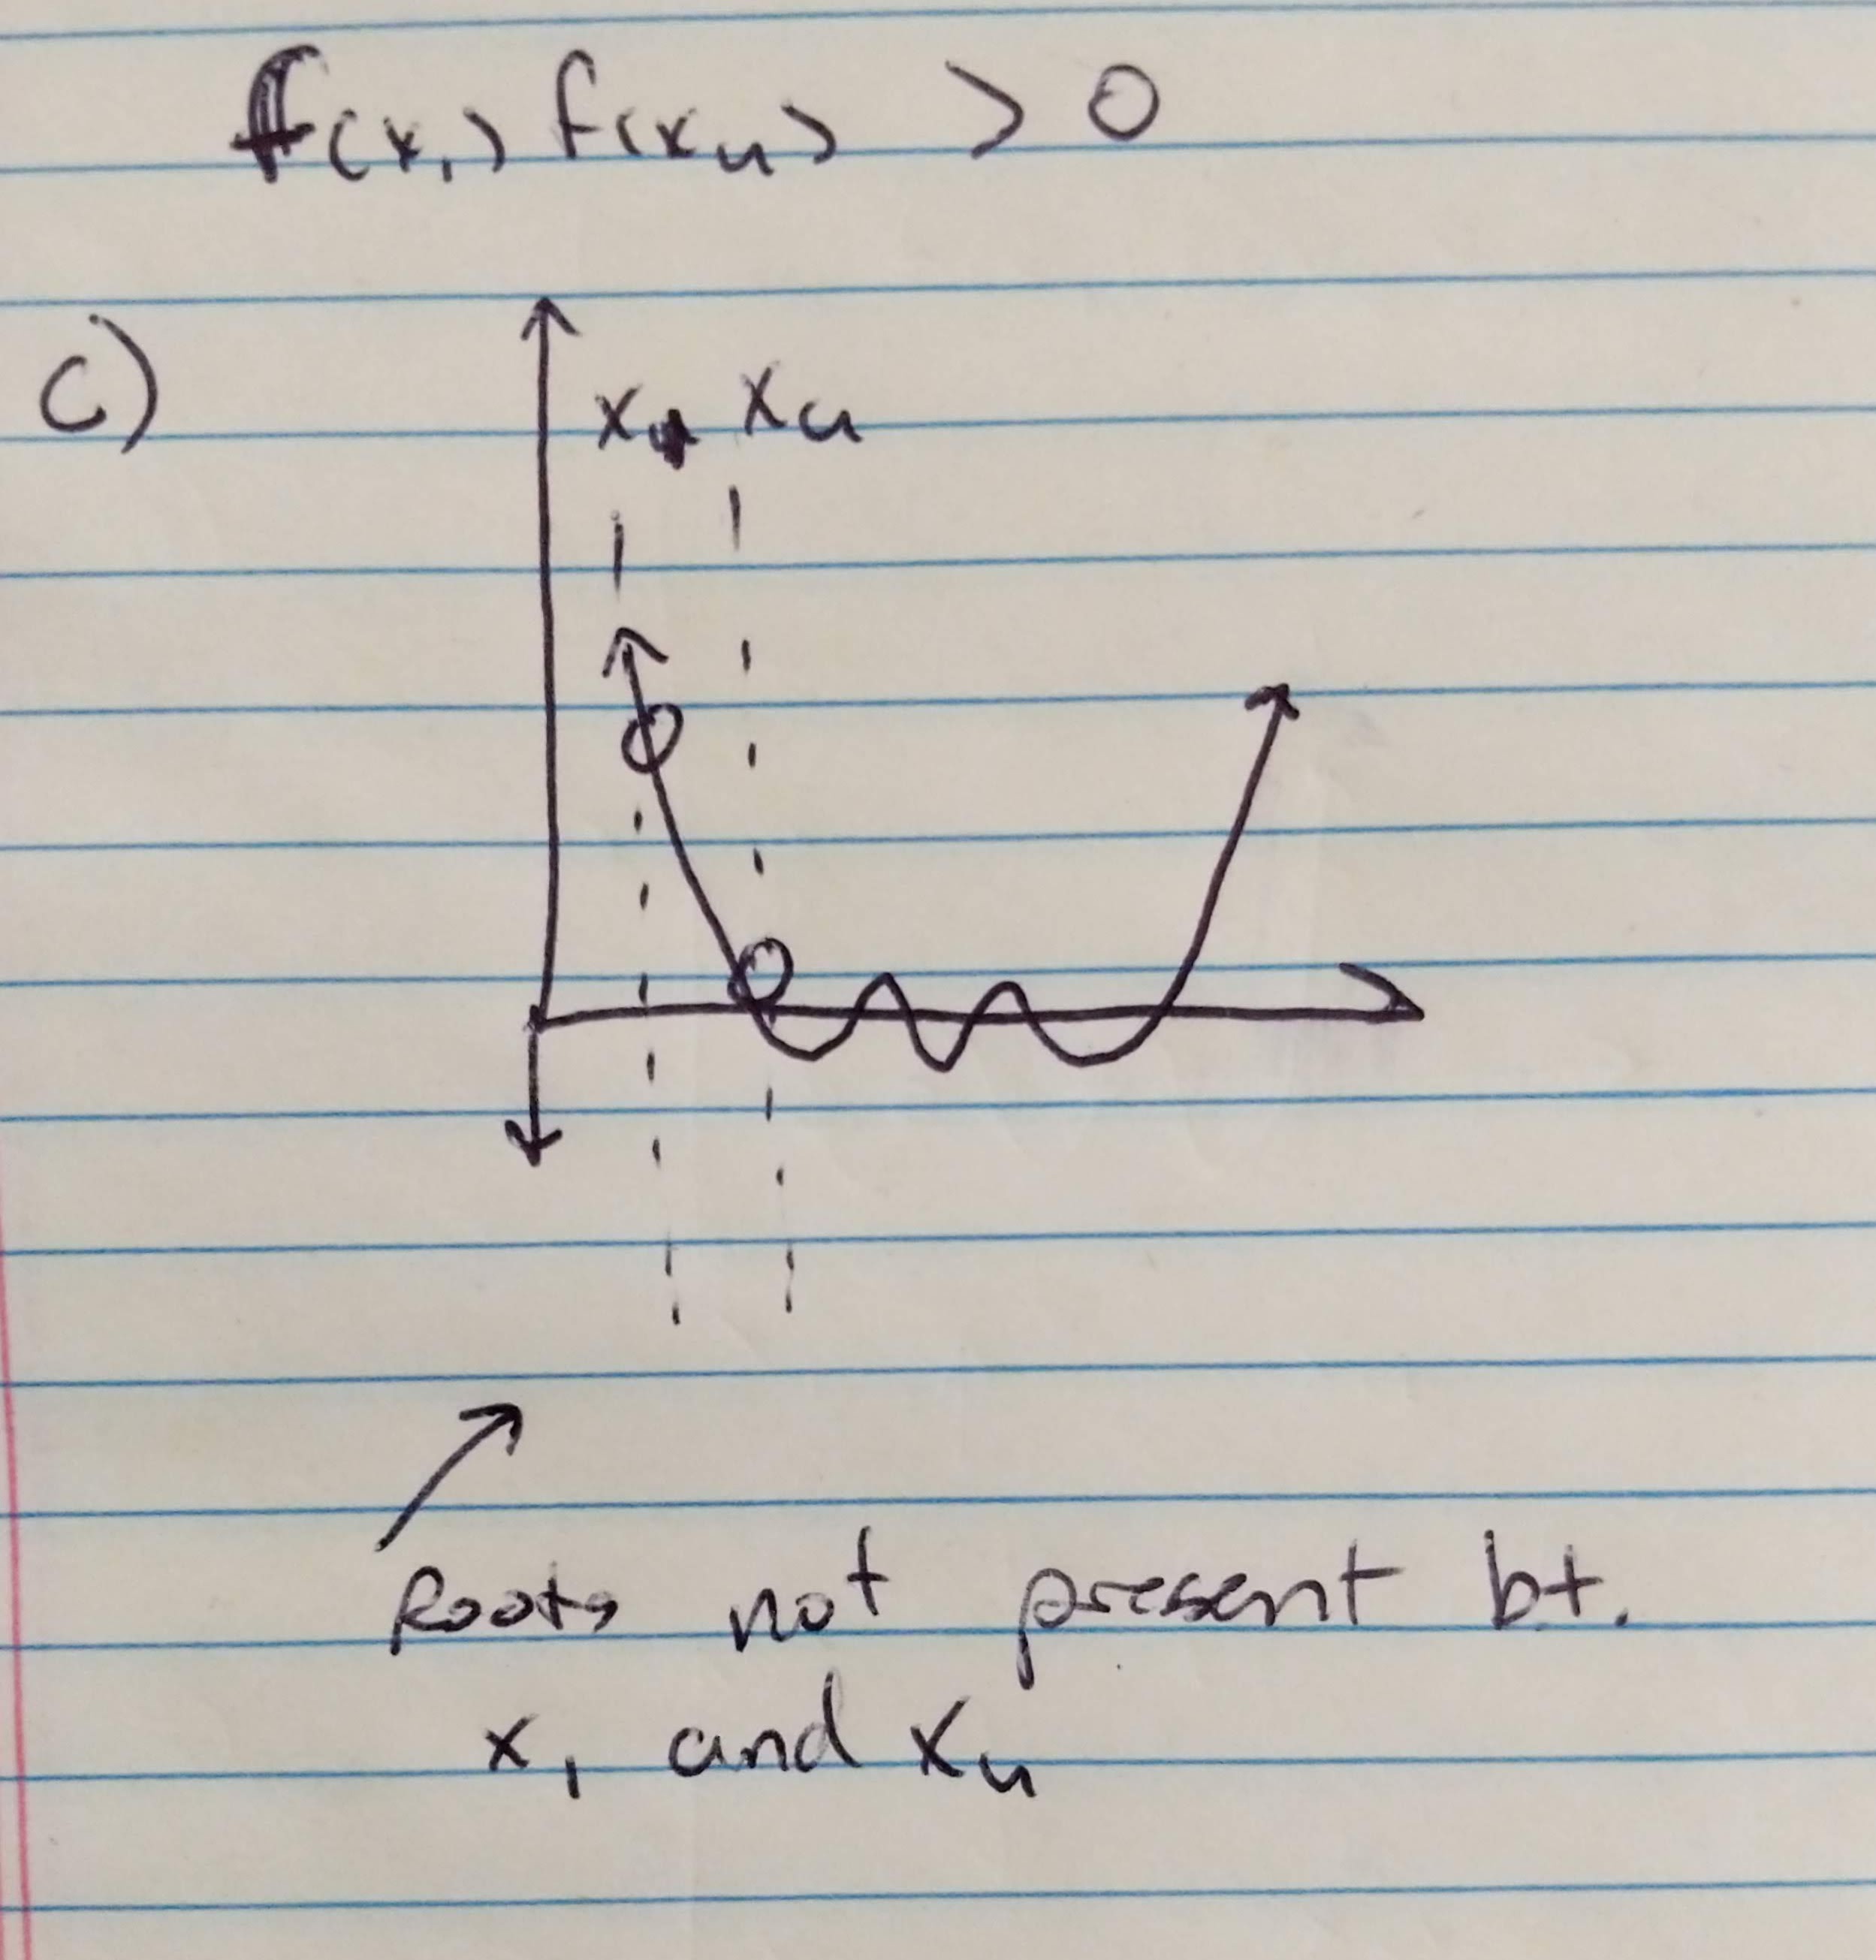 f(x₁) f(xᵤ) > 0
c)
x₁ xᵤ
Roots not present bt.
x₁ and xᵤ